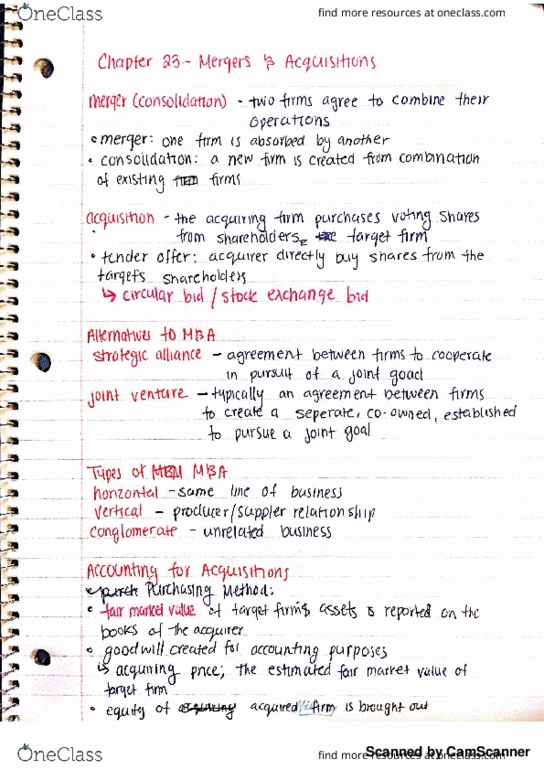 OneClass
find more resources at oneclass.com
Chapter 23 - Mergers & Acquisitions
merger (consolidation) - two firms agree to combine their
operations
• merger: one firm is absorbed by another
• consolidation: a new firm is created from combination
of existing firms
acquisition - the acquiring firm purchases voting shares
from shareholders, target firm
• tender offer: acquirer directly buy shares from the
targets shareholders
↳ circular bid / stock exchange bid
Alternatives to M&A
strategic alliance - agreement between firms to cooperate
in pursuit of a joint goal
joint venture - typically an agreement between firms
to create a seperate, co-owned, established
to pursue a joint goal
Types of M&A
horizontal - same line of business
vertical - producer/suppler relationship
conglomerate - unrelated business
Accounting for Acquisitions
Purchasing Method:
• fair market value of target firms assets is reported on the
books of the acquirer
• goodwill created for accounting purposes
↳ acquiring price; the estimated fair market value of
target firm
• equity of acquired firm is brought out
OneClass
find more resources at oneclass.com
Scanned by CamScanner